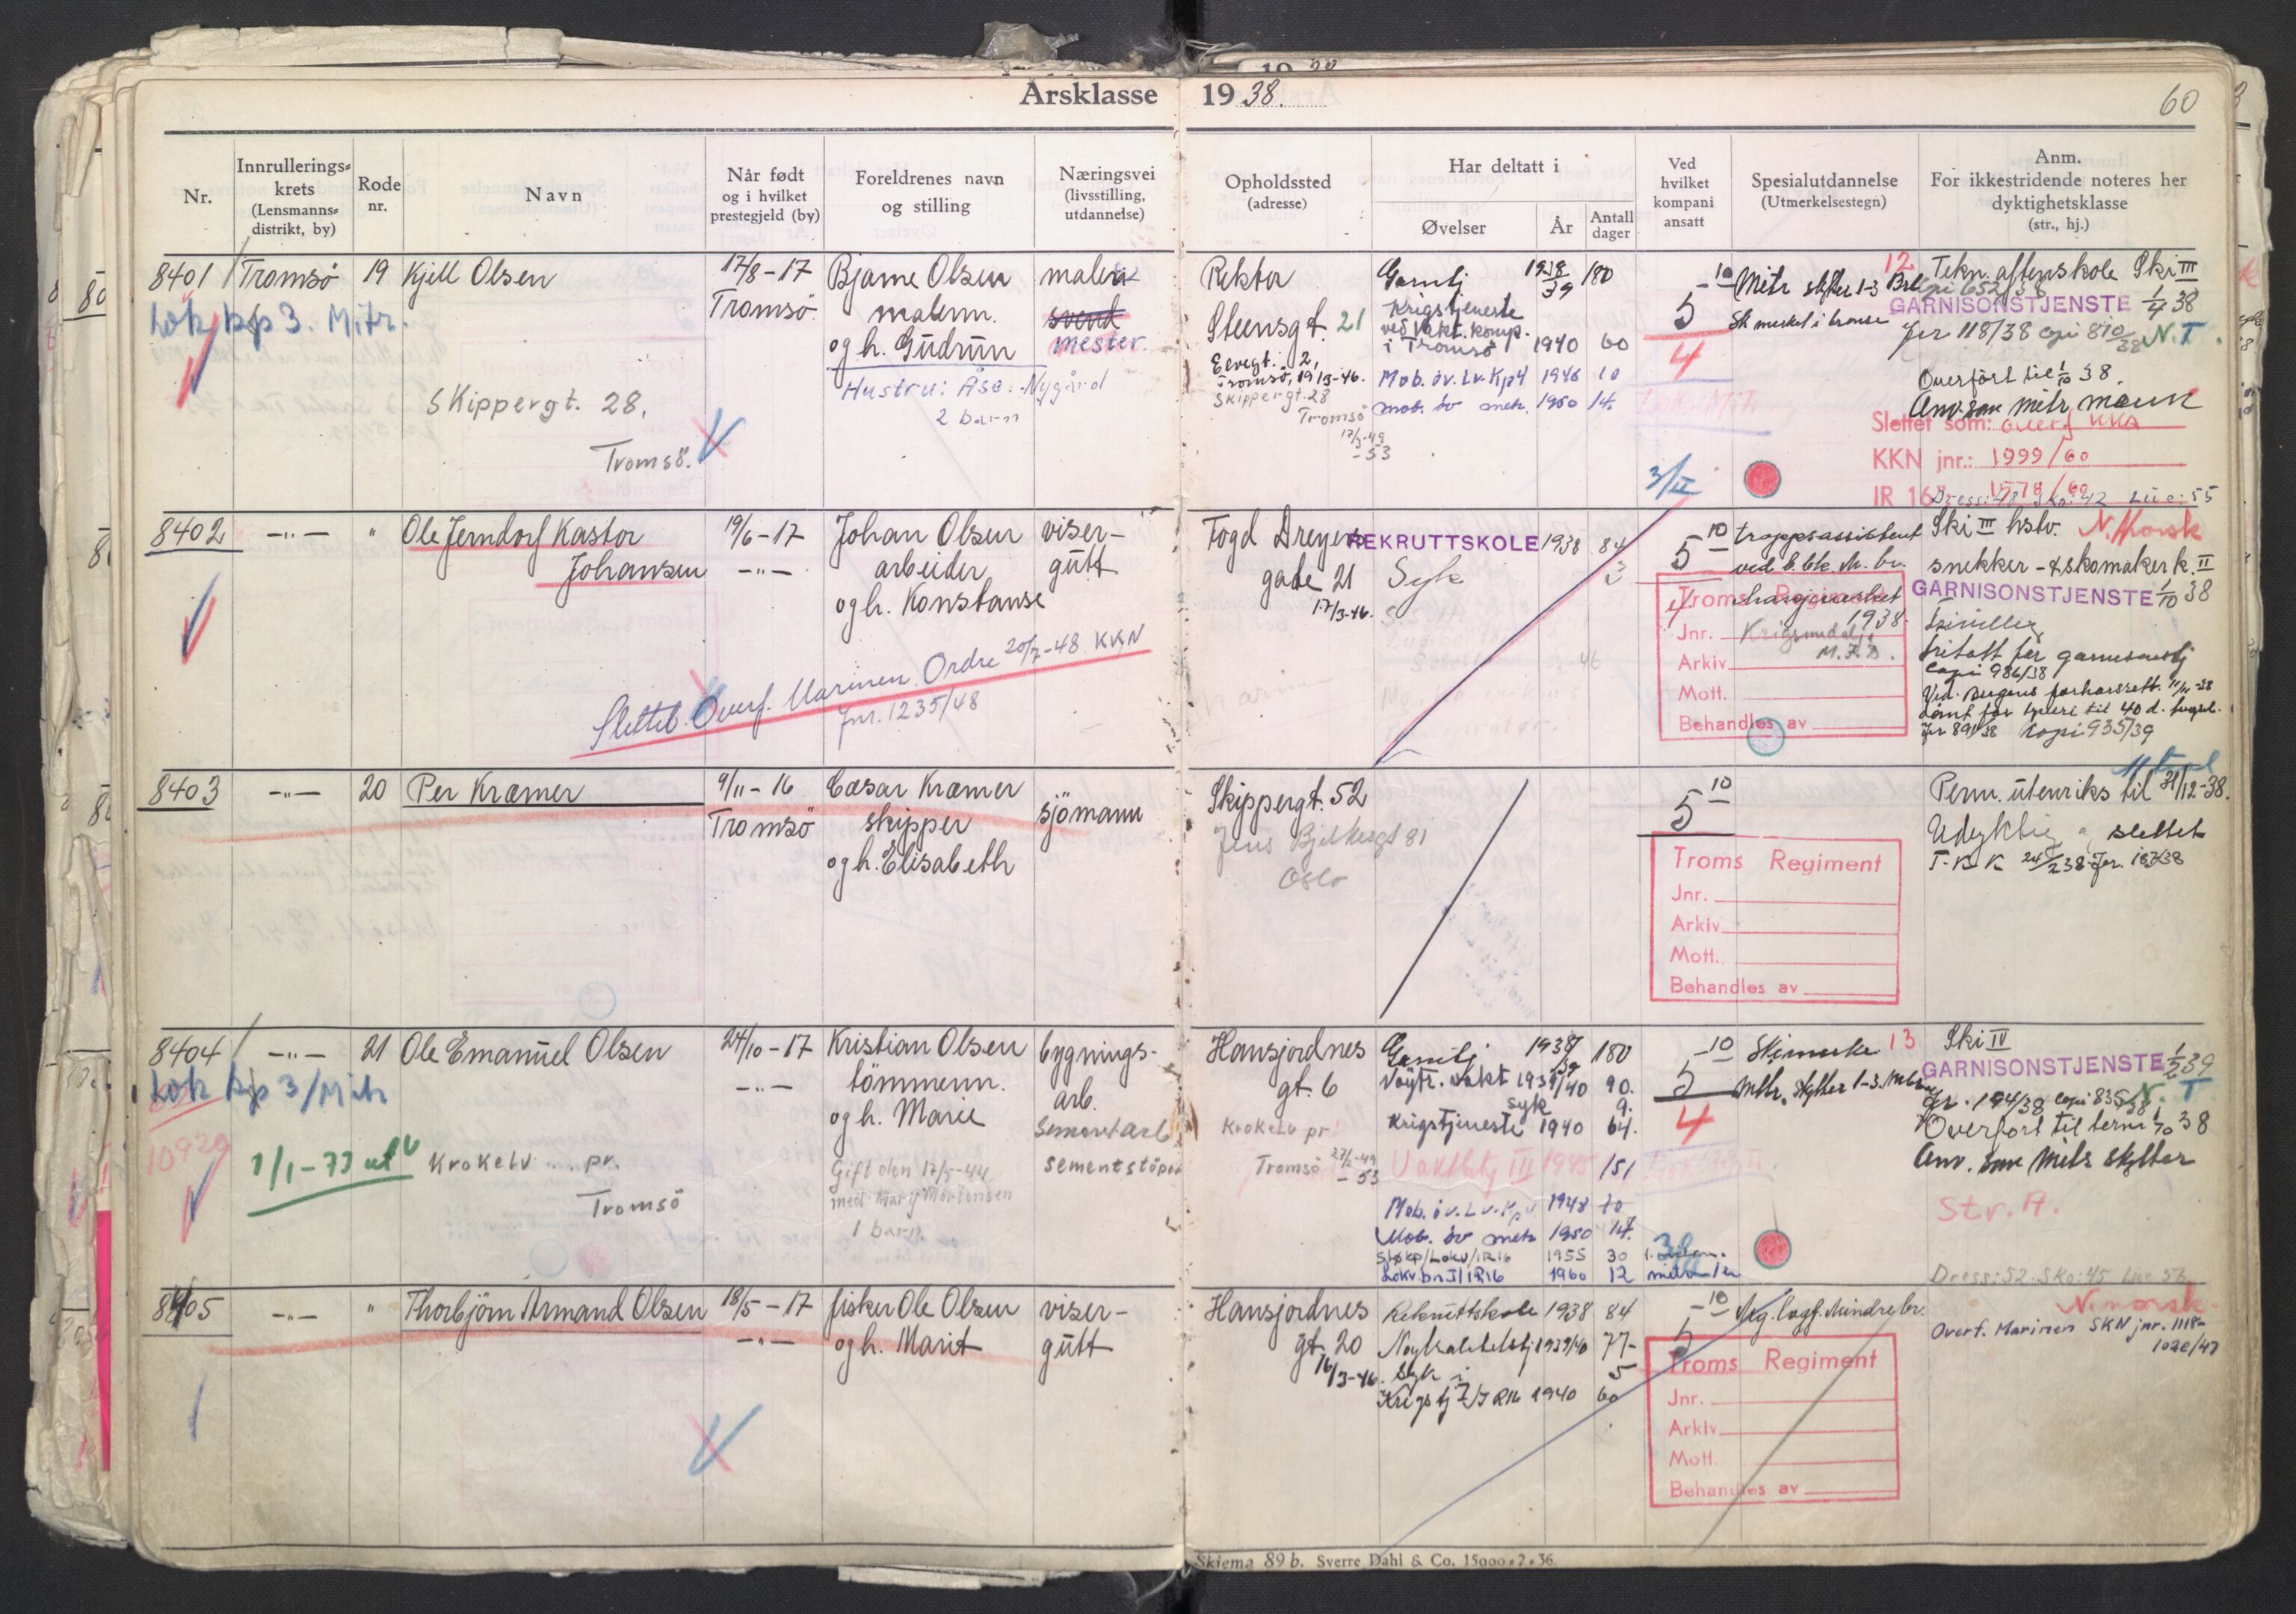 Årsklasse 1938.
60
Nr.
Innrullerings-
krets
(Lensmanns-
distrikt, by)
Rode
nr.
Navn
Når født
og i hvilket
prestegjeld (by)
Foreldrenes navn
og stilling
Næringsvei
(livsstilling,
utdannelse)
Opholdssted
(adresse)
Har deltatt i
Øvelser
År
Antall
dager
Ved
hvilket
kompani
ansatt
Spesialutdannelse
(Utmerkelsestegn)
Anm.
For ikkestridende noteres her
dyktighetsklasse
(str., hj.)
8401 Tromsö 19 Kjell Olsen
Lok kp 3. Mitr.
Skippergt. 28,
Tromsö.
17/8-17
Tromsö
Bjarne Olsen
malerm.
og h. Gudrun
Hustru: Åse Nygård
2 barn
maler
svend
mester
Rektor
Steensgt. 21
Elvegt. 2,
Tromsö, 19/3-46.
Skippergt. 28
Tromsö
17/3-49
-53
Garntj 1938/39 180
Krigstjeneste
ved vakt.komp.
i Tromsö 1940 60
Mob. öv. Lv. Kp 4 1946 10
Mob. öv mitr. 1950 14
10
5
4
3/II
Mitr skytter 1-3
Sk merket i bronse
12
Tekn. aftenskole Ski III
GARNISONSTJENSTE 1/4 38
Jnr 118/38 copi 810/38 N.T.
Overført til 1/10 38.
Anv. som mitr mann
Slettet som:
KKN jnr.: 1999/60
IR 16 1578/60
Dress: 48 Sko: 42 Lue: 55
8402 -"- " Ole Jerndorf Kastor
Johansen
19/6-17
-"-
Johan Olsen
arbeider
og h. Konstanse
viser-
gutt
Slettet. Overf. Marinen. Ordre 20/7-48 KKN
Jnr. 1235/48
Fogd Dreyers
gade 21
17/3-46.
REKRUTTSKOLE 1938 84
Syk 2
10
5
troppsassistent
1938.
Krigsmedalje
Troms Regiment
Jnr.
Arkiv
Mott.
Behandles av
Ski III hstv. N. Norsk
snekker- & skomaker k. II
GARNISONSTJENSTE 1/10 38
fritatt for garnisonstj
Copi 986/38
Jnr 891/38 Kopi 935/39
8403 -"- 20 Per Kræmer
9/11-16
Tromsö
Cæsar Kræmer
skipper
og h. Elisabeth
sjömann
Skippergt. 52
Jens Bjelkesgt 81
Oslo
10
5
Troms Regiment
Jnr.
Arkiv
Mott.
Behandles av
Perm. utenriks til 31/12-38.
Udyktig slettet
T.K.K 24/2 38 Jnr. 187/38
8404 -"- 21 Ole Emanuel Olsen
Lok kp 3/Mitr
10929
1/1-73 ut
Krokelv pr.
Tromsö
24/10-17
-"-
Kristian Olsen
tömmerm.
og h. Marie
Gift den 17/5-44
med Mary Mortensen
1 barn.
bygnings-
arb.
Sementarb
sementstöper
Hansjordnes
gt. 6
Krokelv pr
Tromsö 22/2-49
-53
Garntj 1938/39 180
Nöytr. vakt 1939/40 90.
syk 9.
Krigstjeneste 1940 64.
Vakttj III 1945 151
Mob. öv. Lv. Kp 1948 10
Mob. öv mitr 1950 14.
Stkp/Lokv/IR16 1955 30
Lokv.bn I/IR16 1960 12
10
5
4
Skimerke 13
Mitr. skytter 1-3.
Ski IV
GARNISONSTJENSTE 1/2 39
Jnr. 194/38 copi 835/38 N. T
Overført til term 1/10 38
Anv. som Mitr skytter
Str. A.
Dress: 52 Sko: 45 Lue 57
8405 -"- " Thorbjörn Armand Olsen
18/5-17
-"-
fisker Ole Olsen
og h. Marit
viser-
gutt
Hansjordnes
gt. 20
16/3-46.
Rekruttskole 1938 84
1939/40 77-
Syk 5
Krigstj I/IR16 1940 60
10
5
Troms Regiment
Jnr.
Arkiv
Mott.
Behandles av
N. norsk.
Overf. Marinen SKN jnr. 1118-
1020/47
Skjema 89 b. Sverre Dahl & Co. 15000-2-36.